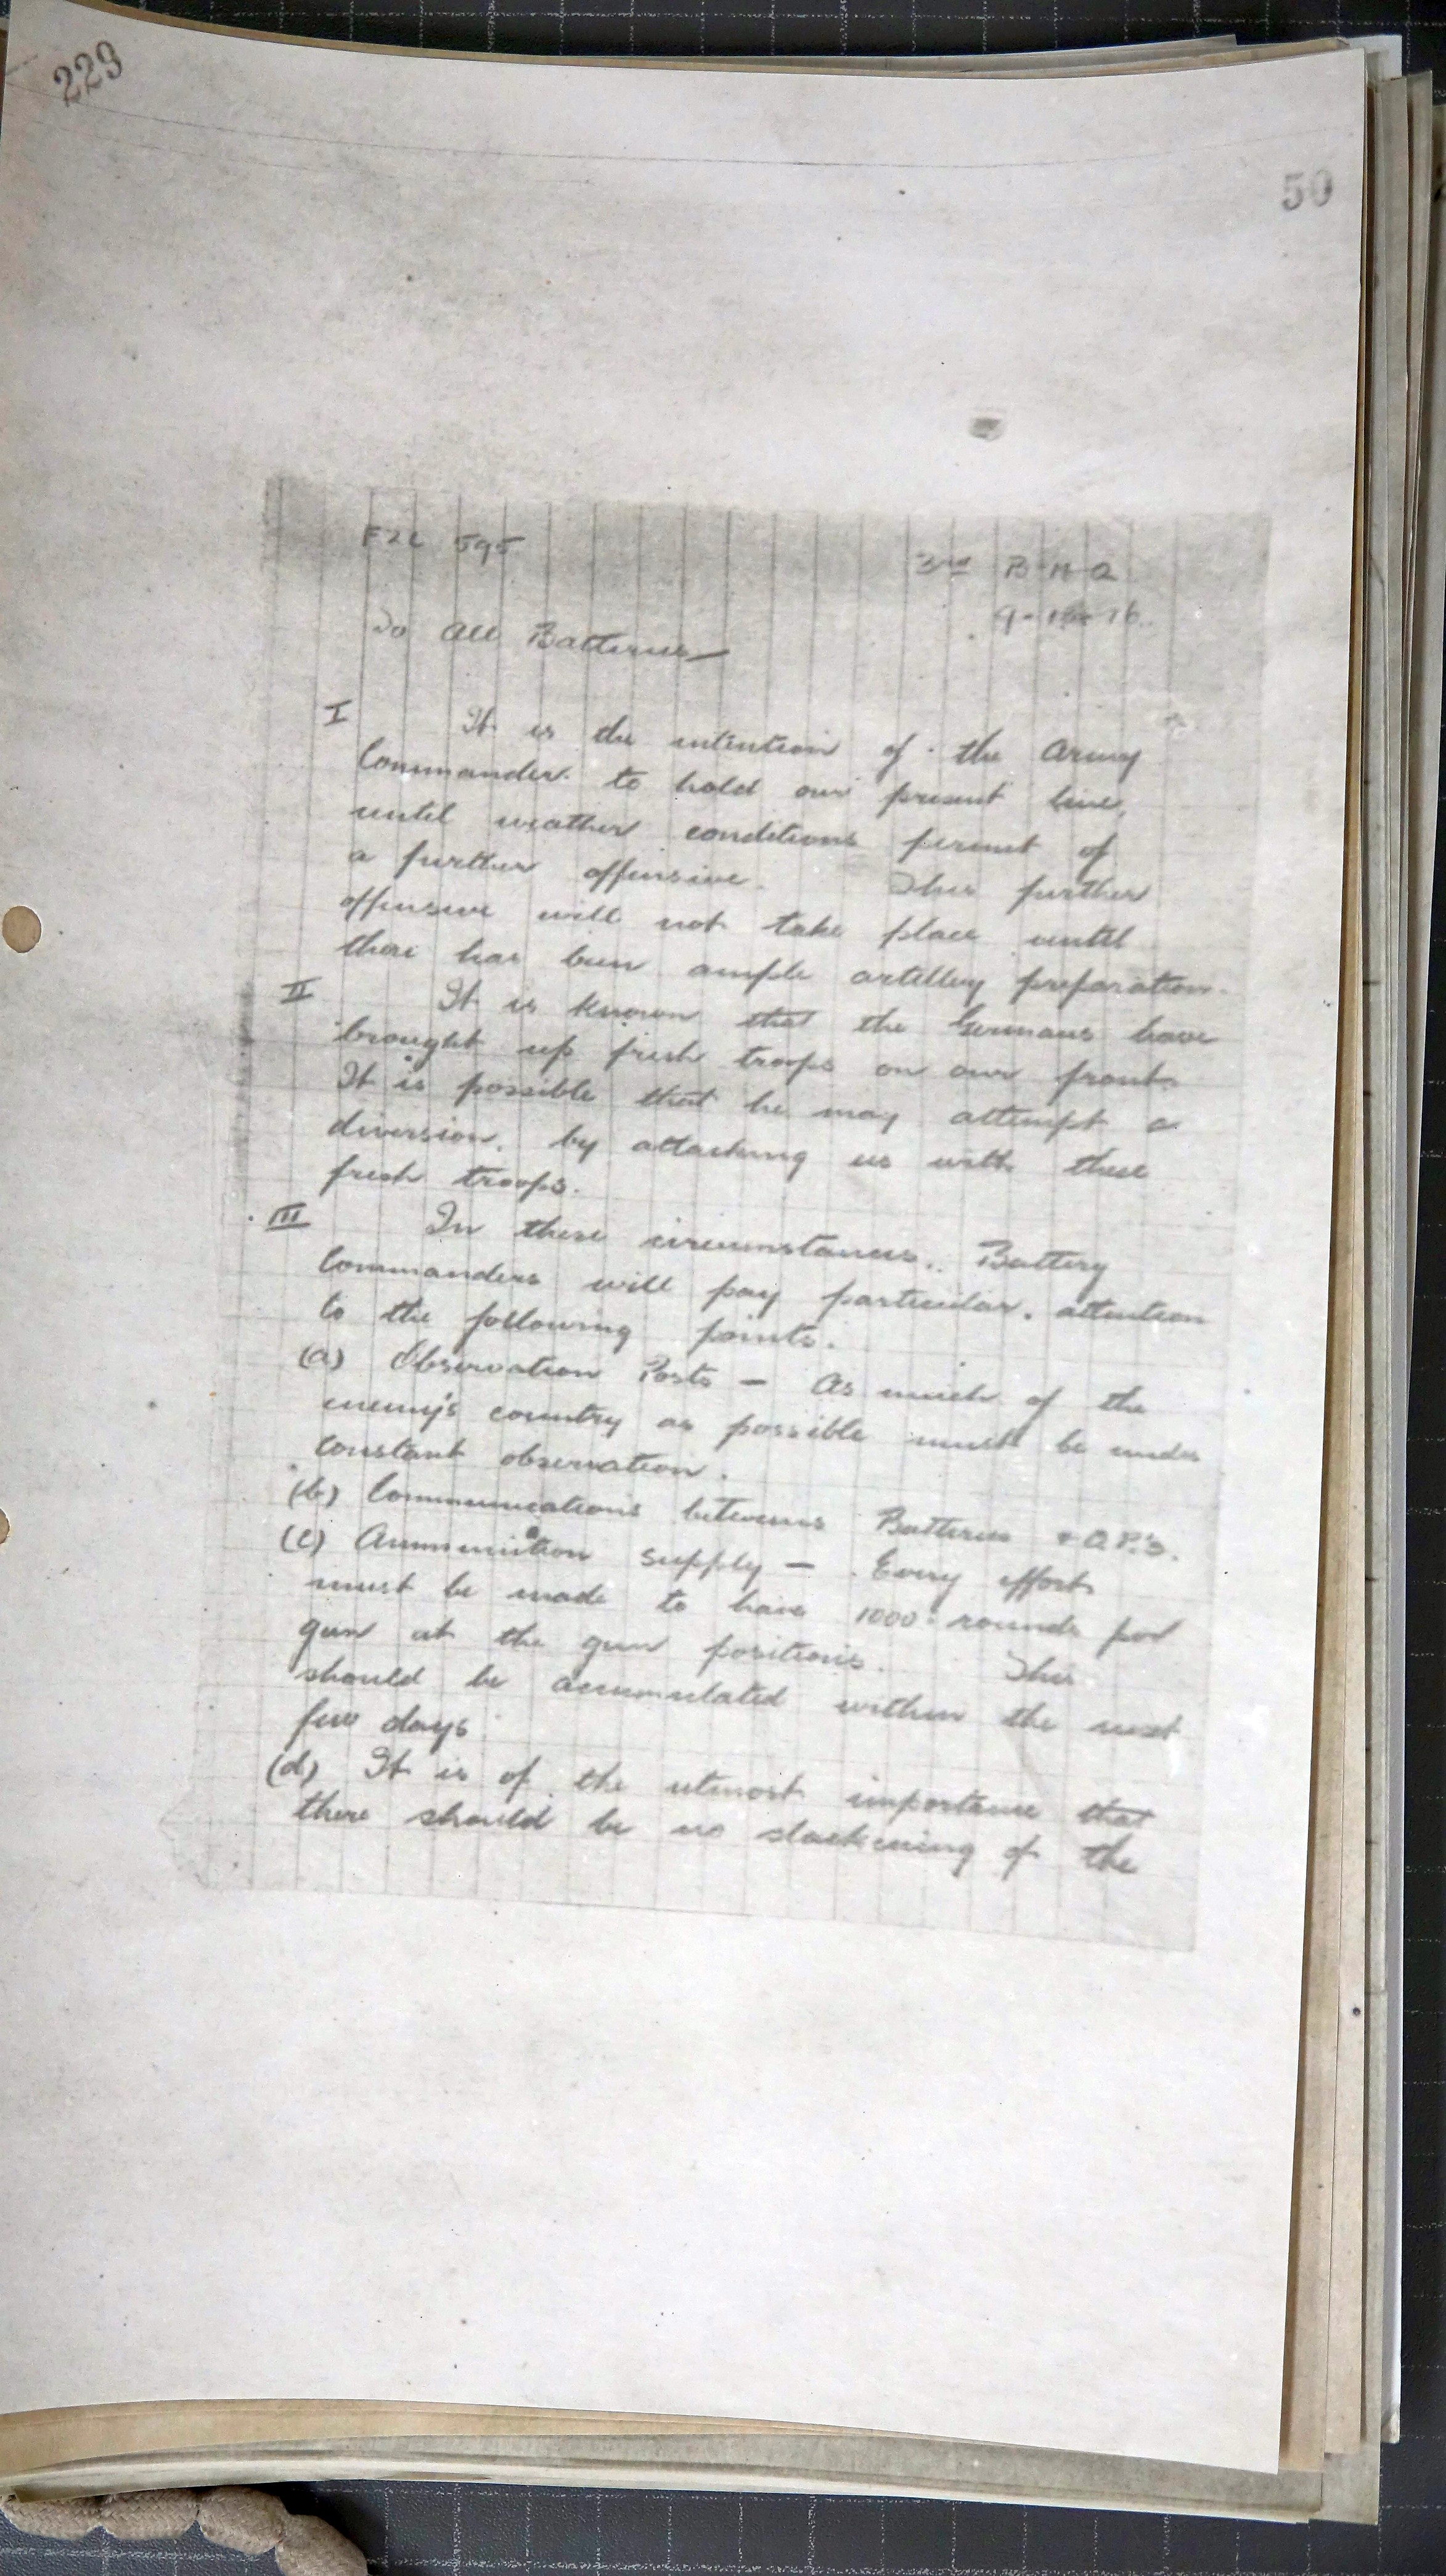 223
50
FZC 595
3rd B H Q
9-10-16.
To All Batteries
I It is the intention of the Army
Commander to hold our present line,
until weather conditions permit of
a further offensive. This further
offensive will not take place until
there has been ample artillery preparation.
II It is known that the Germans have
brought up fresh troops on our front.
It is possible that he may attempt a
diversion, by attacking us with these
fresh troops.
III In these circumstances, Battery
Commanders will pay particular attention
to the following points.
(a) Observation Posts - As much of the
enemy's country as possible must be under
constant observation.
(b) Communications between Batteries & O.P.'s.
(c) Ammunition supply - Every effort
must be made to have 1000 rounds per
gun at the gun positions. This
should be accumulated within the next
few days
(d) It is of the utmost importance that
there should be no slackening of the